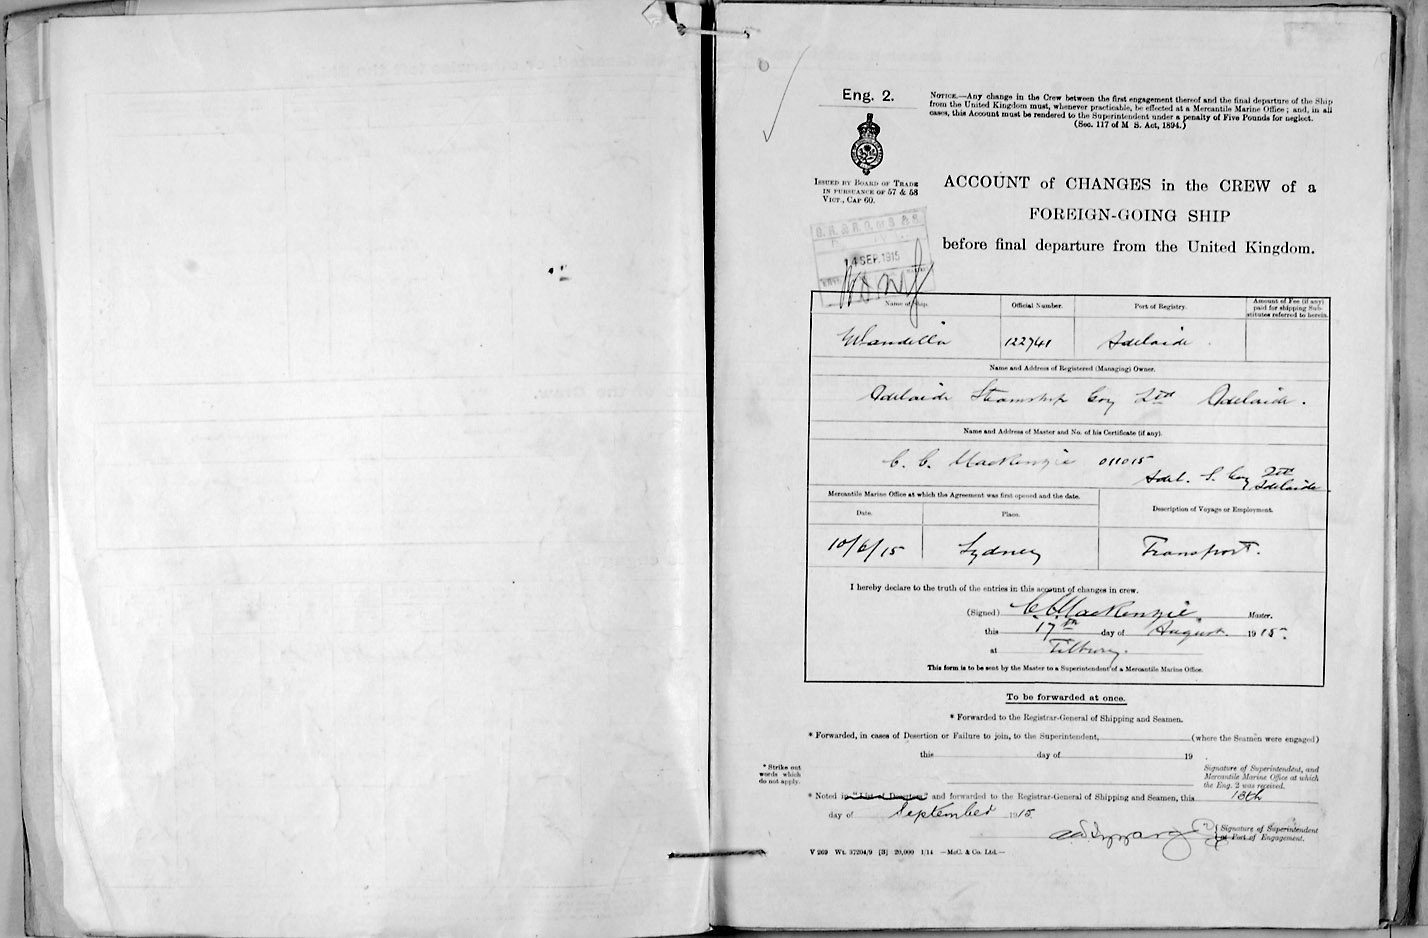 Eng. 2.
NOTICE.—Any change in the Crew between the first engagement thereof and the final departure of the Ship
from the United Kingdom must, whenever practicable, be effected at a Mercantile Marine Office; and, in all
cases, this Account must be rendered to the Superintendent under a penalty of Five Pounds for neglect.
(Sec. 117 of M S. Act, 1894.)
ISSUED BY BOARD OF TRADE
IN PURSUANCE OF 57 & 58
VICT., CAP 60.
ACCOUNT of CHANGES in the CREW of a
FOREIGN-GOING SHIP
before final departure from the United Kingdom.
14 SEP. 1915
Name of Ship.
Official Number.
Port of Registry.
Amount of Fee (if any)
paid for shipping Sub-
stitutes referred to herein.
Wandilla
122741
Adelaide
Name and Address of Registered (Managing) Owner.
Adelaide Steamship Coy Ltd Adelaide.
Name and Address of Master and No. of his Certificate (if any).
C. C. MacKenzie 011015
Adel. S. Coy Ltd
Adelaide
Mercantile Marine Office at which the Agreement was first opened and the date.
Description of Voyage or Employment.
Date.
Place.
10/6/15
Sydney
Transport.
I hereby declare to the truth of the entries in this account of changes in crew.
(Signed) C C MacKenzie Master.
this 17th day of August 1915.
at Tilbury.
This form is to be sent by the Master to a Superintendent of a Mercantile Marine Office.
To be forwarded at once.
* Forwarded to the Registrar-General of Shipping and Seamen.
* Forwarded, in cases of Desertion or Failure to join, to the Superintendent, (where the Seamen were engaged)
this day of 19 .
* Strike out
words which
do not apply.
Signature of Superintendent, and
Mercantile Marine Office at which
the Eng. 2 was received.
* Noted in "List of Deserters" and forwarded to the Registrar-General of Shipping and Seamen, this 13th
day of September 1915.
Signature of Superintendent
at Port of Engagement.
V 269 Wt. 37204/9 [3] 20,000 1/14 —McC. & Co. Ltd.—